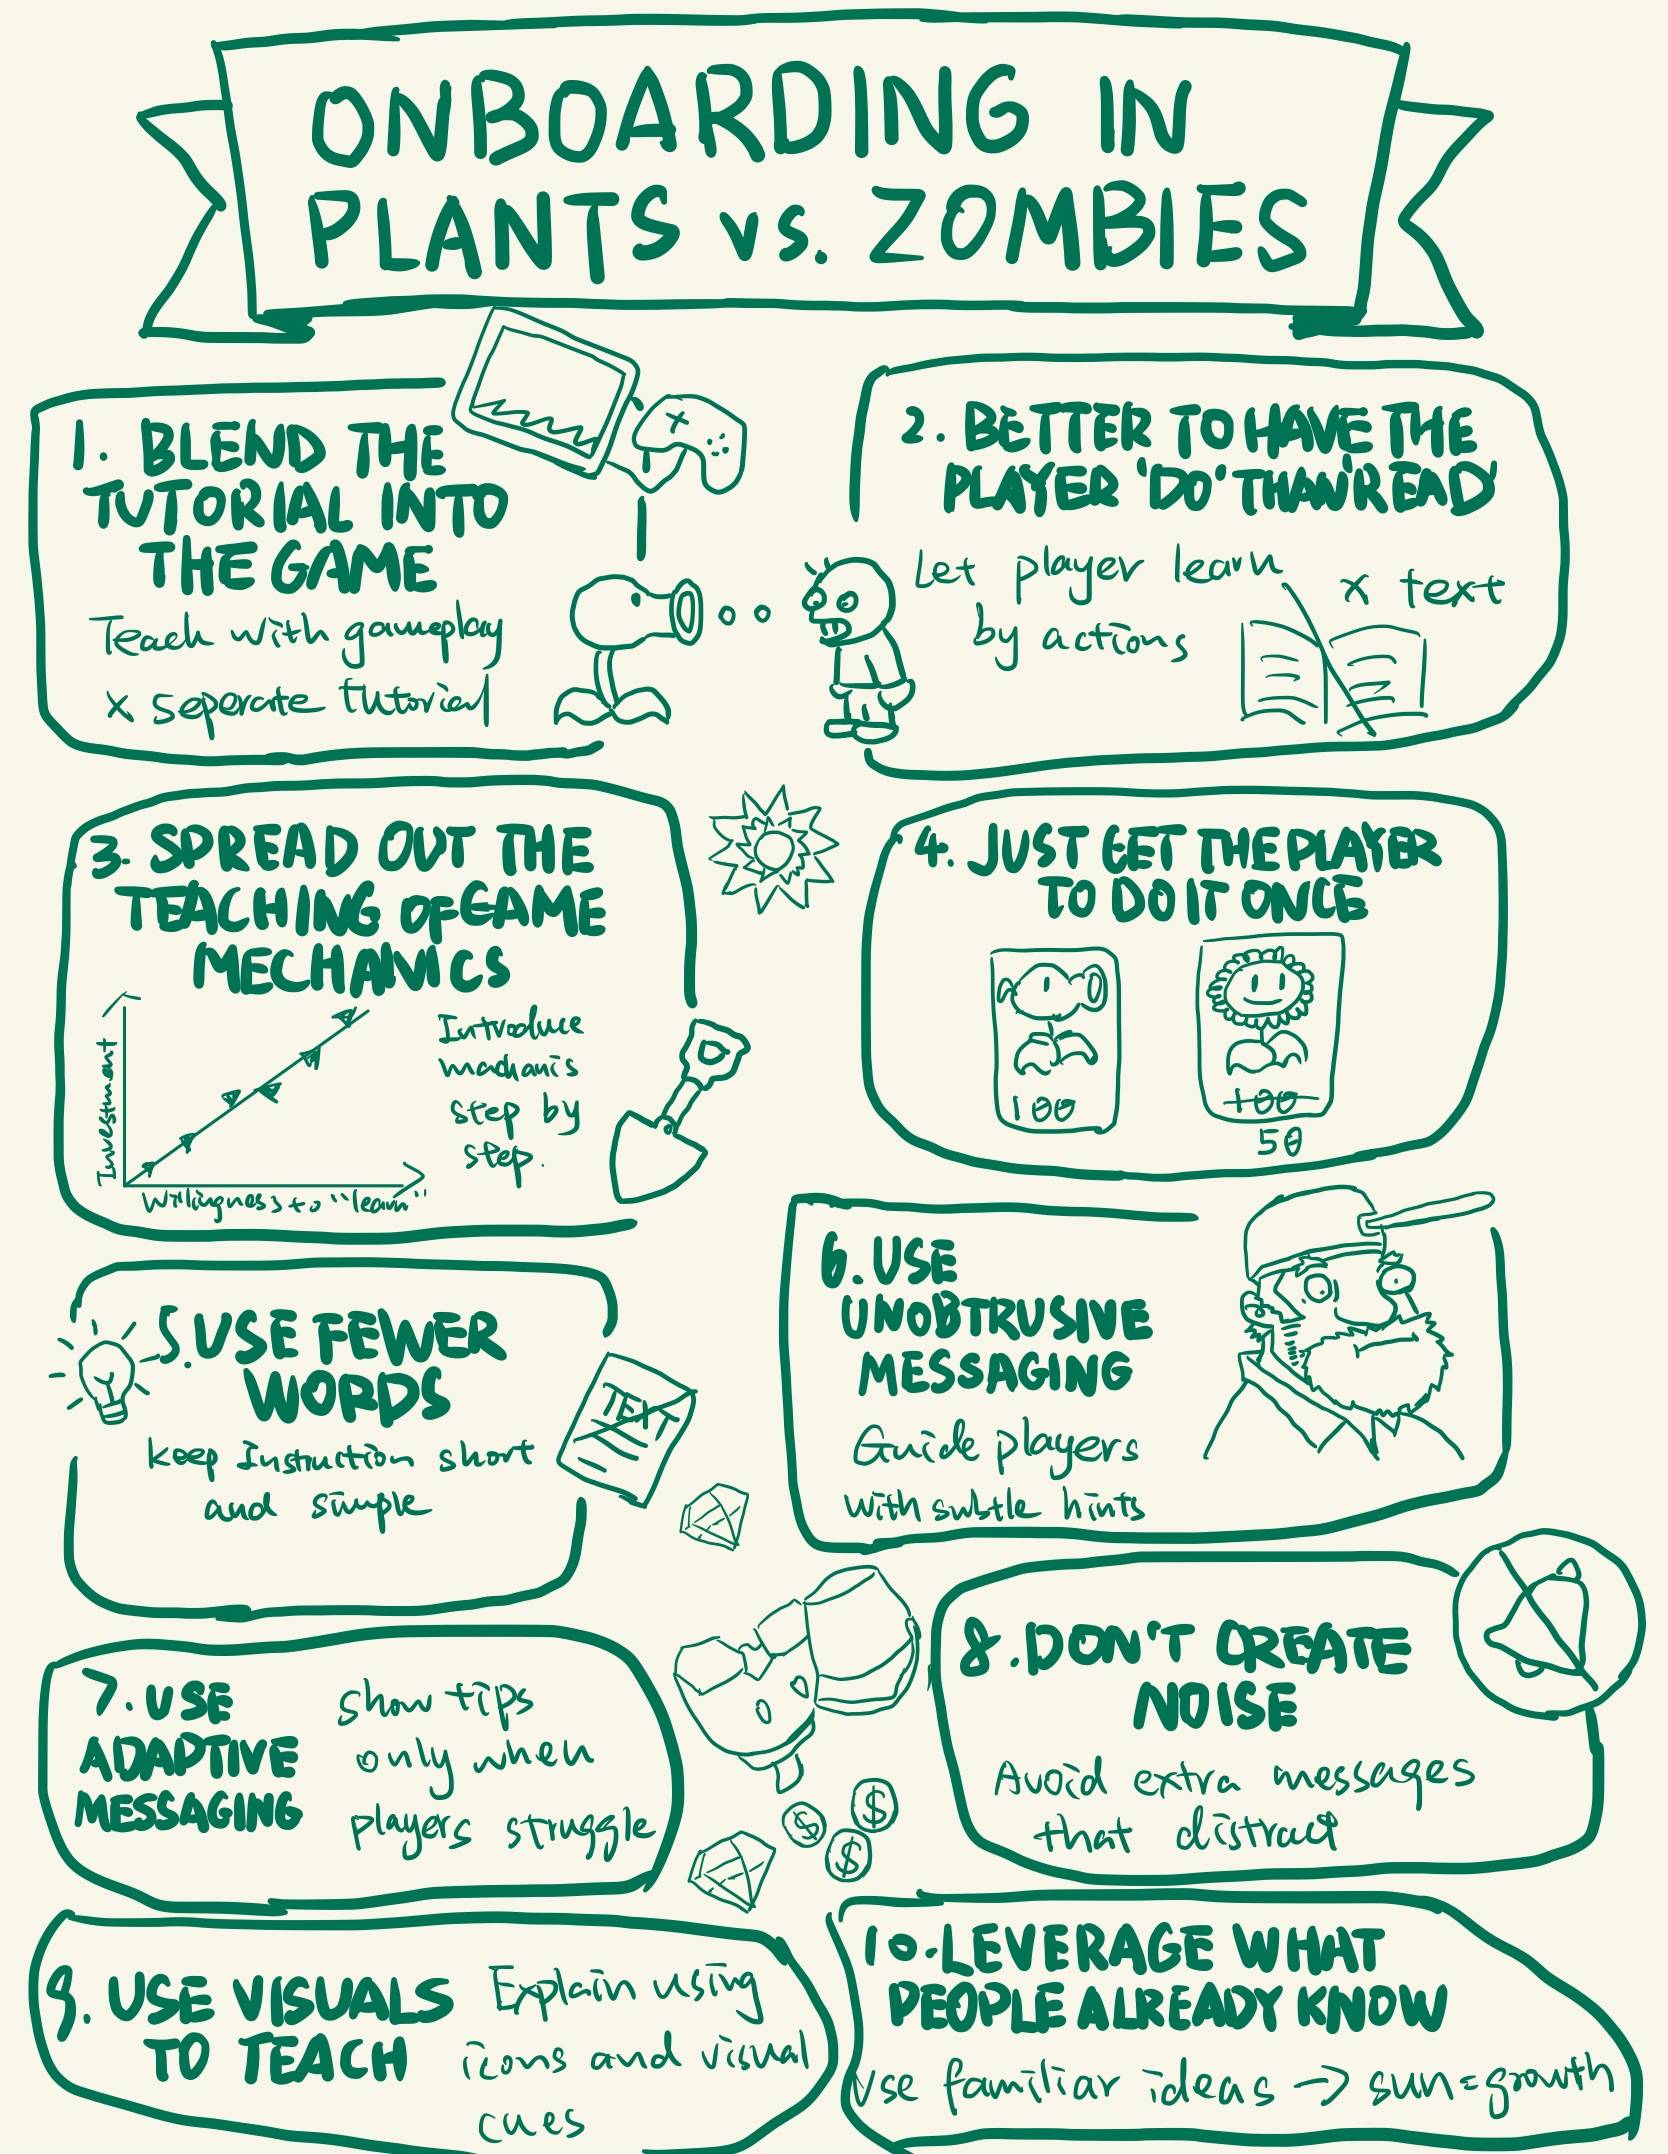 ONBOARDING IN
PLANTS vs. ZOMBIES
1. BLEND THE
TUTORIAL INTO
THE GAME
Teach with gameplay
x seperate tutorial
2. BETTER TO HAVE THE
PLAYER 'DO' THAN READ
Let player learn
by actions
x text
3. SPREAD OUT THE
TEACHING OF GAME
MECHANICS
Investment
Willingness to "learn"
Introduce
machanis
step by
step.
4. JUST GET THE PLAYER
TO DO IT ONCE
100
100
50
5. USE FEWER
WORDS
keep Instruction short
and simple
TEXT
6. USE
UNOBTRUSIVE
MESSAGING
Guide players
with subtle hints
7. USE
ADAPTIVE
MESSAGING
show tips
only when
players struggle
$
$
$
8. DON'T CREATE
NOISE
Avoid extra messages
that distract
9. USE VISUALS
TO TEACH
Explain using
icons and visual
cues
10. LEVERAGE WHAT
PEOPLE ALREADY KNOW
Use familiar ideas → sun=growth